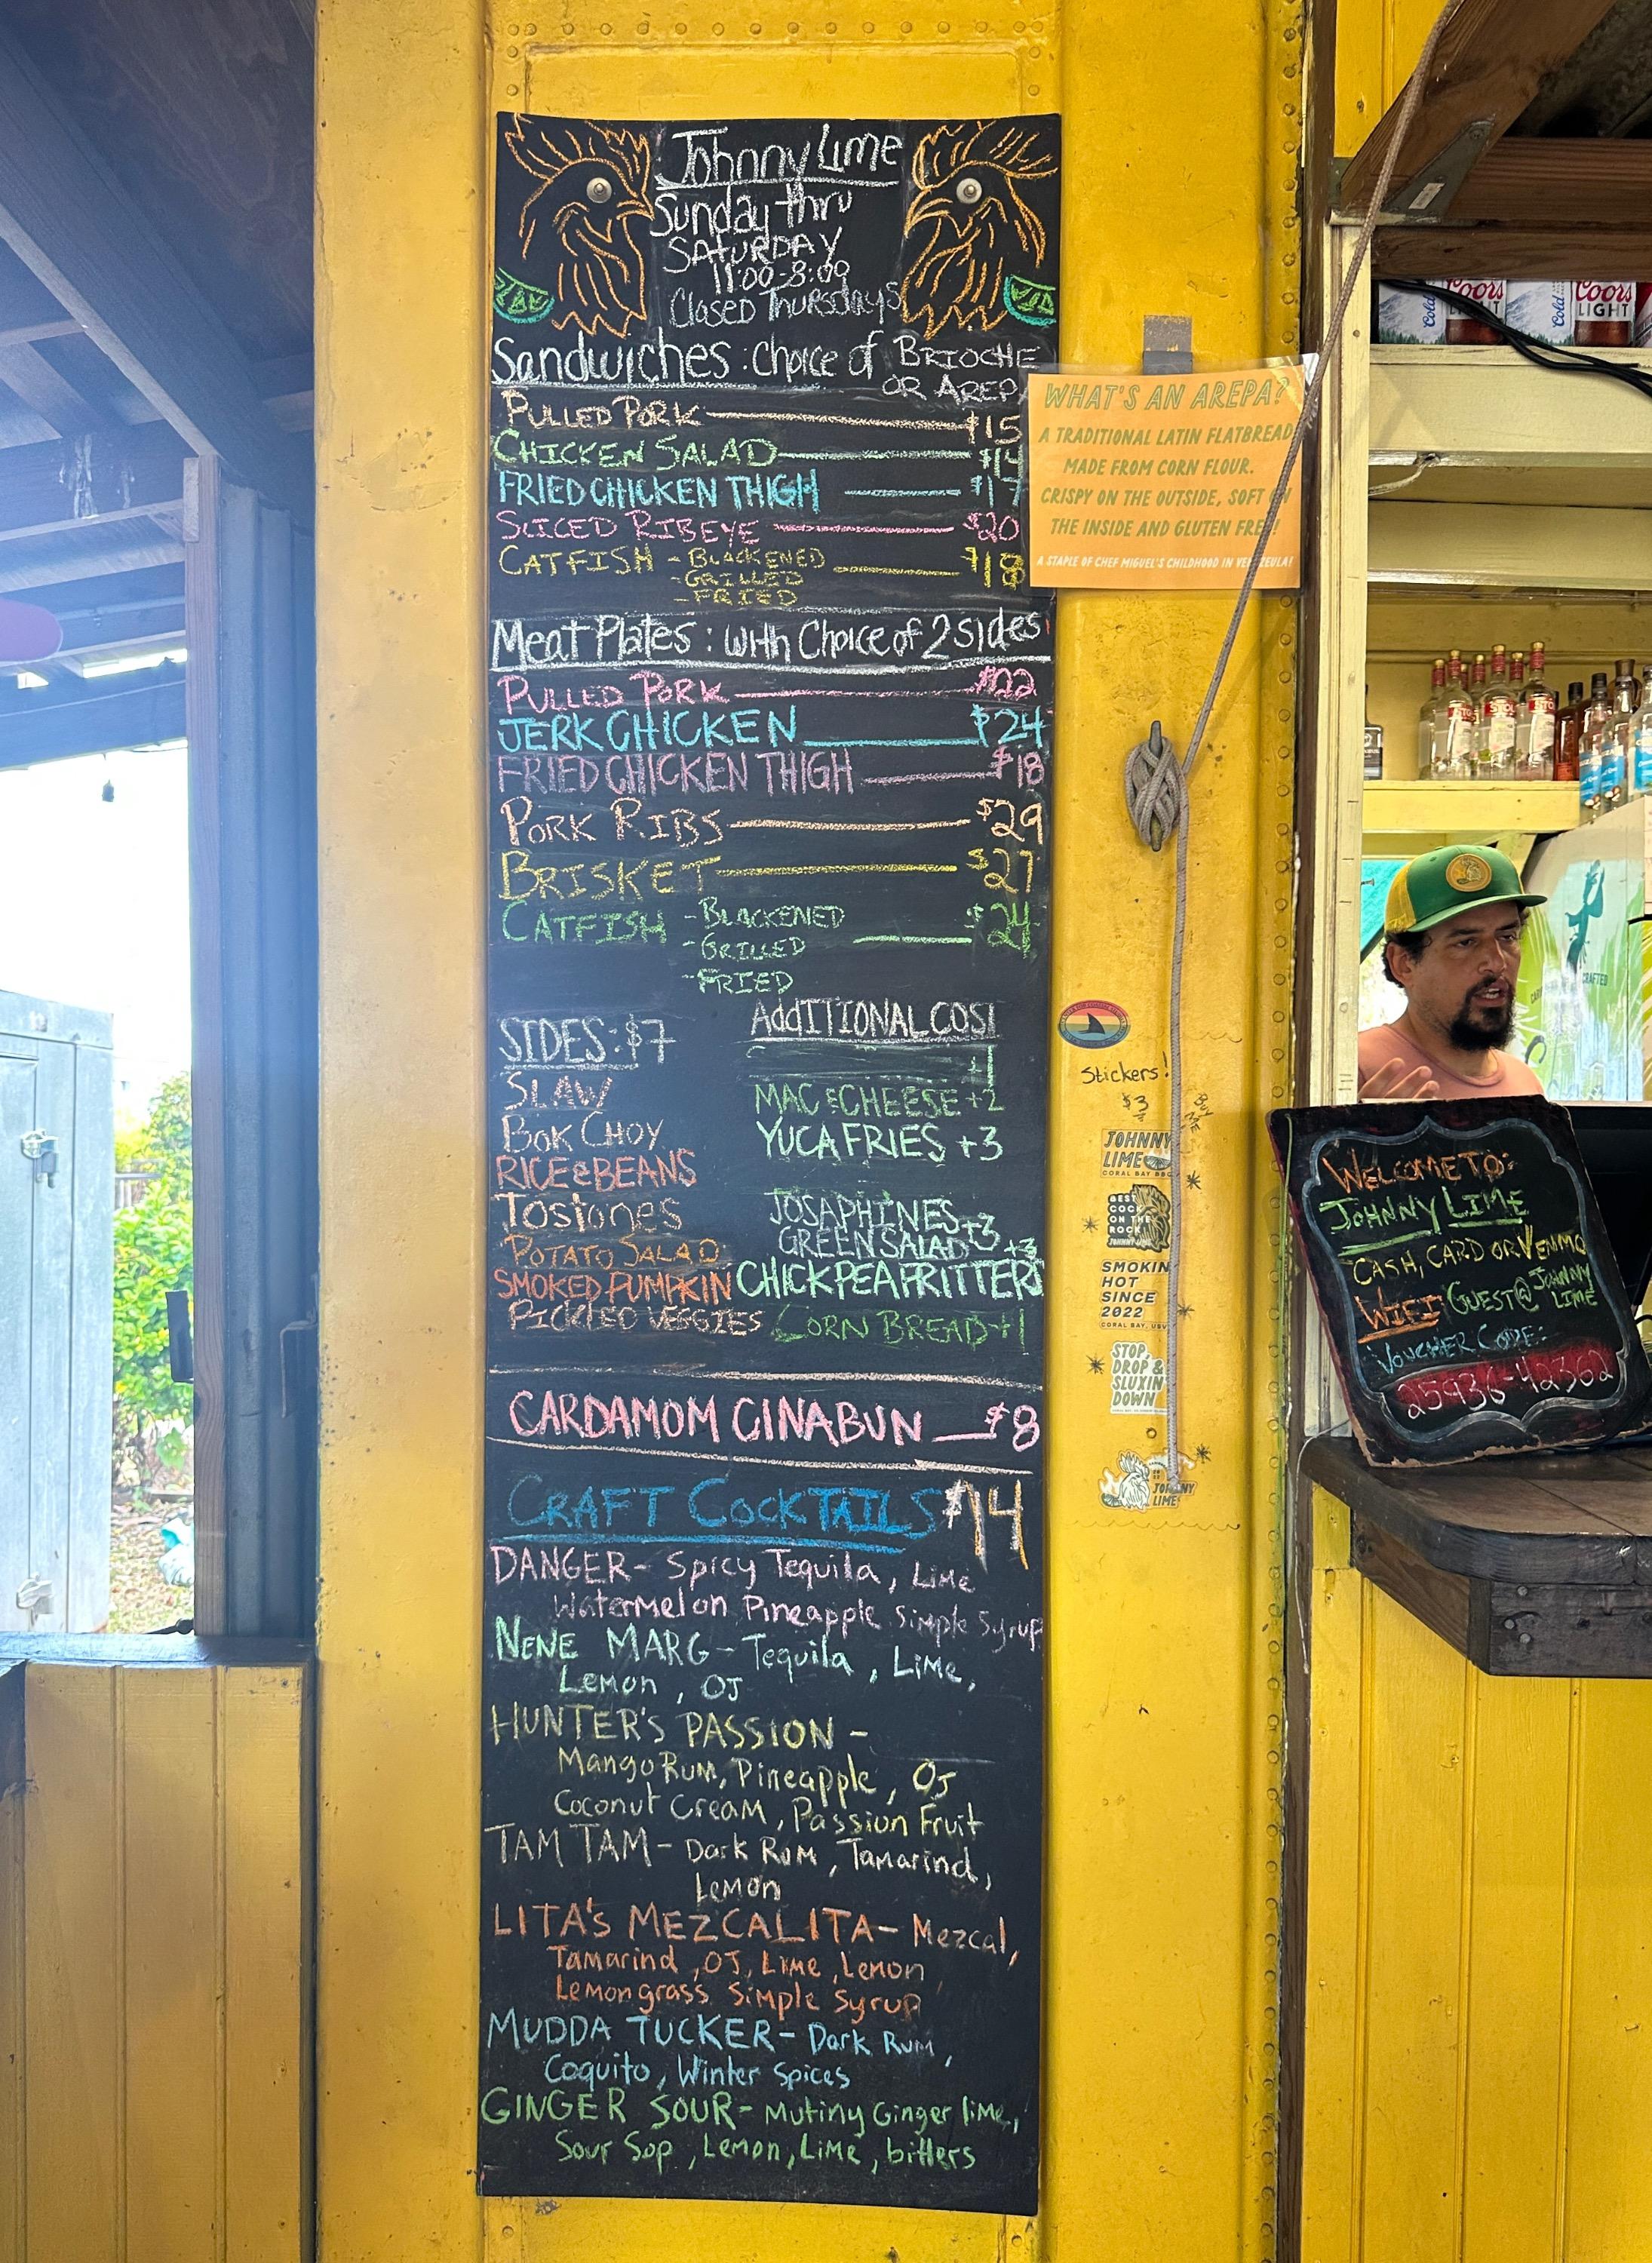 Johnny Lime
Sunday thru
SATURDAY
11:00-8:00
Closed Thursdays
Sandwiches: Choice of BRIOCHE
OR AREPA
PULLED PORK $15
CHICKEN SALAD $14
FRIED CHICKEN THIGH $17
SLICED RIBEYE $20
CATFISH - BLACKENED $18
- GRILLED
- FRIED
Meat Plates: with Choice of 2 sides
PULLED PORK $22
JERK CHICKEN $24
FRIED CHICKEN THIGH $18
PORK RIBS $29
BRISKET $27
CATFISH - BLACKENED $24
- GRILLED
- FRIED
SIDES: $7
SLAW
BOK CHOY
RICE & BEANS
Tostones
POTATO SALAD
SMOKED PUMPKIN
PICKLED VEGGIES
AddITIONAL COST
+1
MAC & CHEESE +2
YUCA FRIES +3
JOSAPHINES +3
GREEN SALAD
+3
CHICKPEA FRITTERS
CORN BREAD +1
CARDAMOM CINABUN $8
CRAFT COCKTAILS $14
DANGER- Spicy Tequila, Lime
Watermelon Pineapple Simple Syrup
NENE MARG- Tequila, Lime,
Lemon, OJ
HUNTER'S PASSION -
Mango Rum, Pineapple, OJ
Coconut Cream, Passion Fruit
TAM TAM- Dark Rum, Tamarind,
Lemon
LITA's MEZCALITA- Mezcal,
Tamarind, OJ, Lime, Lemon
Lemongrass Simple Syrup
MUDDA TUCKER- Dark Rum,
Coquito, Winter Spices
GINGER SOUR- Mutiny Ginger lime,
Sour Sop, Lemon, Lime, bitters
WHAT'S AN AREPA?
A TRADITIONAL LATIN FLATBREAD
MADE FROM CORN FLOUR.
CRISPY ON THE OUTSIDE, SOFT ON
THE INSIDE AND GLUTEN FREE!
A STAPLE OF CHEF MIGUEL'S CHILDHOOD IN VENEZEULA!
Stickers!
$3
JOHNNY
LIME
CORAL BAY BBQ
BEST
COCK
ON THE
ROCK!
JOHNNY LIME
SMOKIN
HOT
SINCE
2022
CORAL BAY, USVI
STOP,
DROP &
SLUXIN
DOWN
JOHNNY
LIME
Coors
LIGHT
Cold
Cold
Coors
LIGHT
STOLI
STOLI
CRAFTED
WELCOME TO:
JOHNNY LIME
CASH, CARD OR VENMO
WIFI: GUEST@JOHNNY
LIME
VOUCHER CODE:
25936-42362